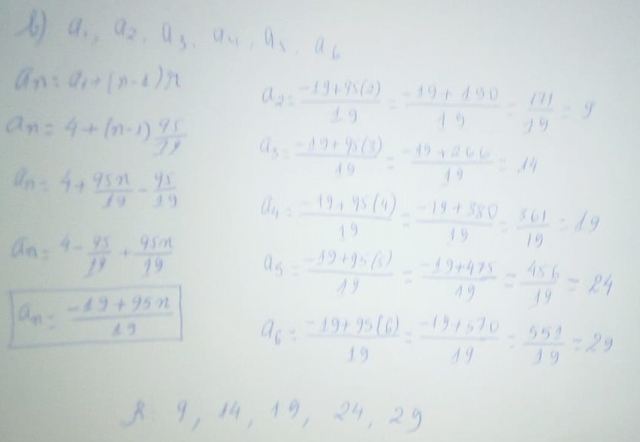 b) a₁, a₂, a₃, a₄, a₅, a₆
aₙ = a₁ + (n-1)r
aₙ = 4 + (n-1) 95/19
aₙ = 4 + 95n/19 - 95/19
aₙ = 4 - 95/19 + 95n/19
aₙ = -19 + 95n/19
a₂ = -19+95(2)/19 = -19+190/19 = 171/19 = 9
a₃ = -19+95(3)/19 = -19+266/19 = 14
a₄ = -19+95(4)/19 = -19+380/19 = 361/19 = 19
a₅ = -19+95(5)/19 = -19+475/19 = 456/19 = 24
a₆ = -19+95(6)/19 = -19+570/19 = 551/19 = 29
R: 9, 14, 19, 24, 29